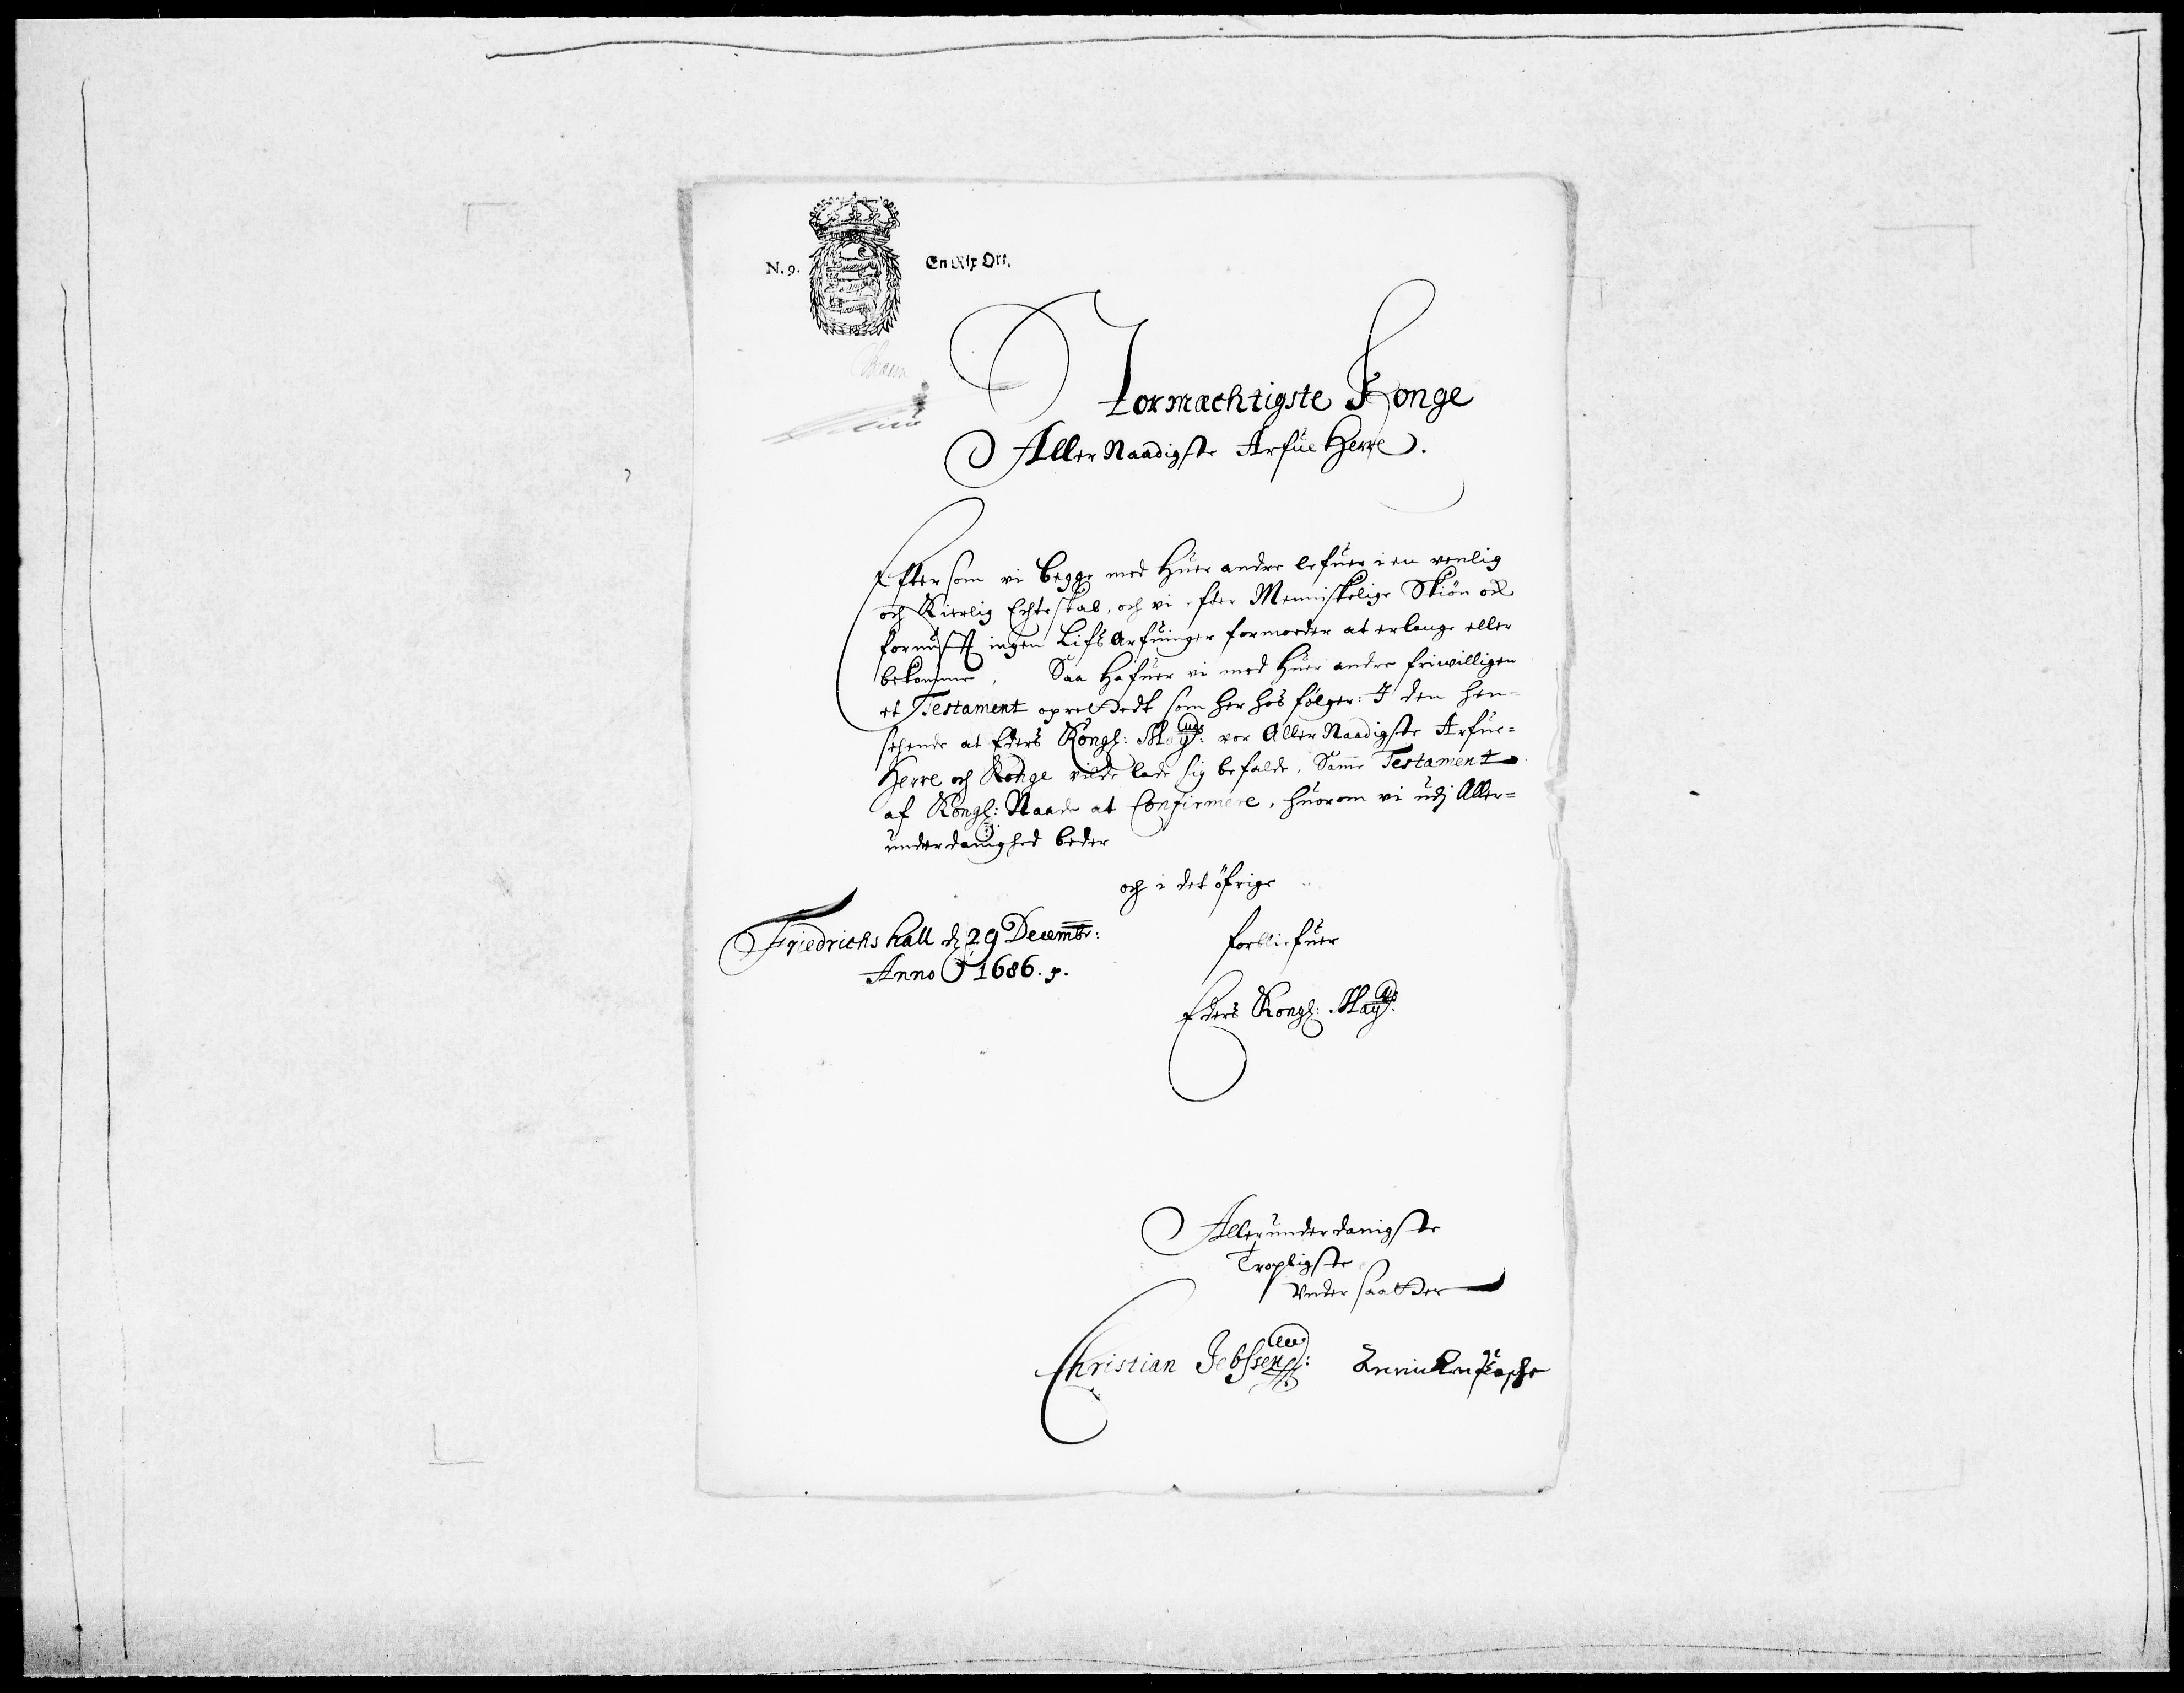 N. 9. En Rix Ort.
Stormæchtigste Konge
Aller Naadigste Arfue Herre.
Efter som vi begge med Huer andre lefuer i en venlig
och Kierlig Echteskab, och vi efter Menniskelige Skiön och
fornufft ingen Lifs Arfuinger formoeder at erlange eller
bekomme, Saa Hafuer vi med Huer andre friwilligen
et Testament oprettedt som her hos fölger: I den hen=
seende at Eders Kongl: Mayts: vor Aller Naadigste Arfue=
Herre och Konge vilde lade sig befalde, Samme Testament
af Kongl: Naade at Confirmere, huorom vi udj Aller=
underdanighed beder
och i det öfrige
Friedrichs hall d. 29 Decembr:
Anno 1686.
forbliefuer
Eders Kongl: Mayts:
Allerunderdanigste
Tropligste
Vnder saatter
Christian Jebssen